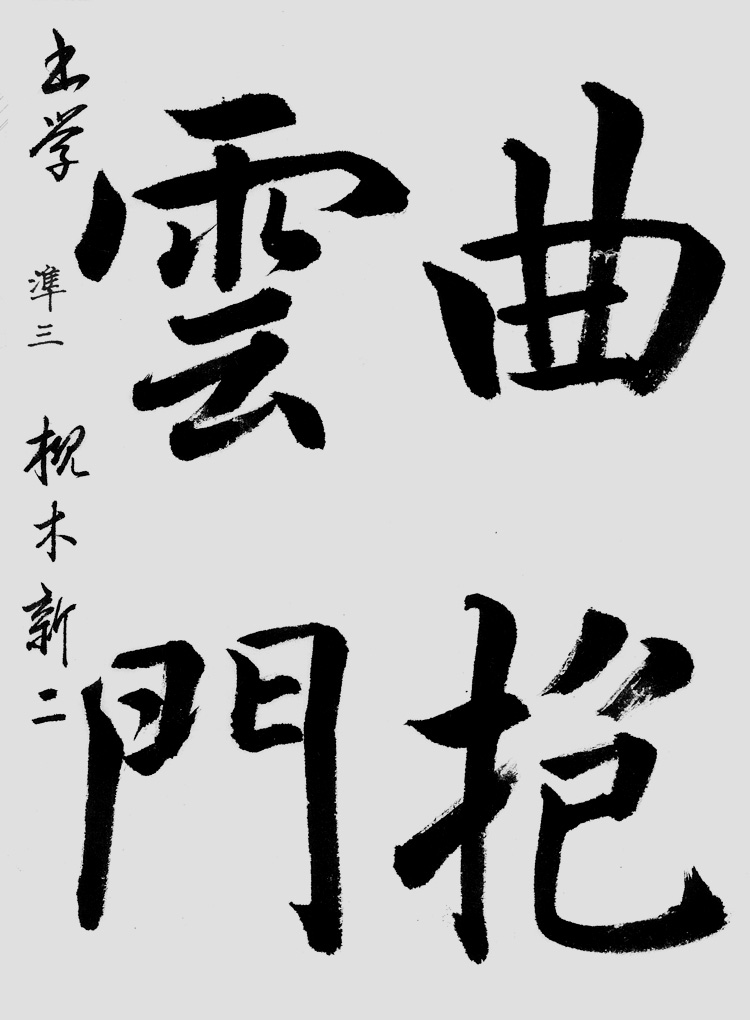 曲抱
雲門
書学 準三 槻木新二